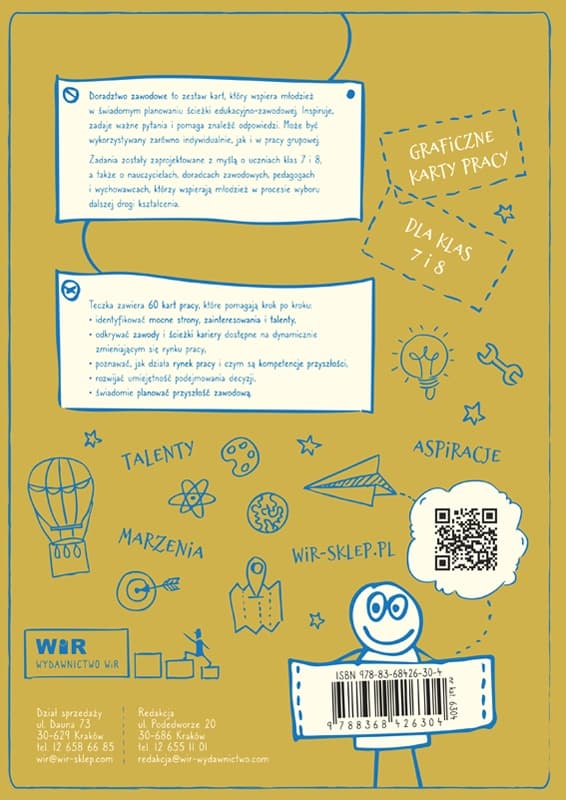 Doradztwo zawodowe to zestaw kart, który wspiera młodzież
w świadomym planowaniu ścieżki edukacyjno-zawodowej. Inspiruje,
zadaje ważne pytania i pomaga znaleźć odpowiedzi. Może być
wykorzystywany zarówno indywidualnie, jak i w pracy grupowej.
Zadania zostały zaprojektowane z myślą o uczniach klas 7 i 8,
a także o nauczycielach, doradcach zawodowych, pedagogach
i wychowawcach, którzy wspierają młodzież w procesie wyboru
dalszej drogi kształcenia.
GRAFICZNE
KARTY PRACY
DLA KLAS
7 i 8
Teczka zawiera 60 kart pracy, które pomagają krok po kroku:
• identyfikować mocne strony, zainteresowania i talenty,
• odkrywać zawody i ścieżki kariery dostępne na dynamicznie
zmieniającym się rynku pracy,
• poznawać, jak działa rynek pracy i czym są kompetencje przyszłości,
• rozwijać umiejętność podejmowania decyzji,
• świadomie planować przyszłość zawodową.
TALENTY
ASPIRACJE
MARZENIA
WiR-SKLEP.PL
WiR
WYDAWNICTWO WiR
ISBN 978-83-68426-30-4
nr kat. 6304
9 788368 426304
Dział sprzedaży
ul. Dauna 73
30-629 Kraków
tel. 12 658 66 85
wir@wir-sklep.com
Redakcja
ul. Podedworze 20
30-686 Kraków
tel. 12 655 11 01
redakcja@wir-wydawnictwo.com